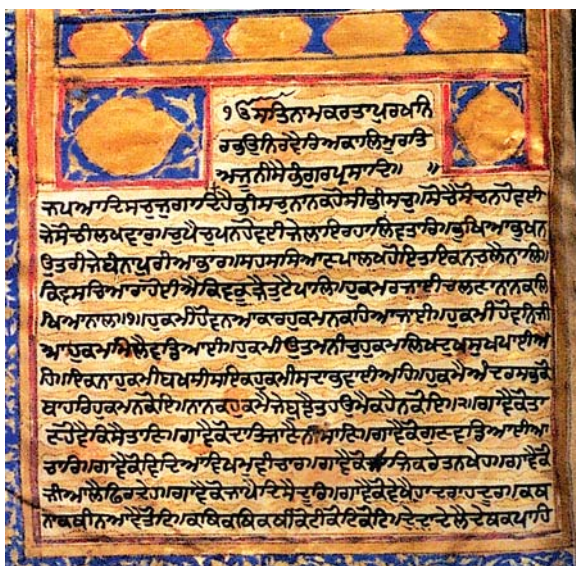 ੴਸਤਿਨਾਮਕਰਤਾਪੁਰਖਨਿ
ਰਭਉਨਿਰਵੈਰਿਅਕਾਲਿਮੂਰਤਿ
ਅਜੂਨੀਸੈਭੰਗੁਰਪ੍ਰਸਾਦਿ॥ ॥
ਜਪਆਦਿਸਚੁਜੁਗਾਦਿਹੈਭੀਸਚੁਨਾਨਕਹੋਸੀਭੀਸਚੁ॥ਸੋਚੈਸੋਚਨਹੋਵਈ
ਜੇਸੋਚੀਲਖਵਾਰ॥ਚੁਪੈਚੁਪਨਹੋਵਈਜੇਲਾਇਰਹਾਲਿਵਤਾਰਿ॥ਭੁਖਿਆਭੁਖਨ
ਉਤਰੀਜੇਬੰਨਾਪੁਰੀਆਭਾਰ॥ਸਹਸਸਿਆਣਪਾਲਖਹੋਇਤਾਇਕਨਚਲੈਨਾਲਿ॥
ਕਿਵਸਚਿਆਰਾਹੋਈਐਕਿਵਕੂੜੈਤੁਟੈਪਾਲਿ॥ਹੁਕਮਰਜਾਈਚਲਣਾਨਾਨਕਲਿ
ਖਿਆਨਾਲ॥੧॥ਹੁਕਮੀਹੋਵਨਆਕਾਰਹੁਕਮਨਕਹਿਆਜਾਈ॥ਹੁਕਮੀਹੋਵਨਿਜੀ
ਅਹੁਕਮਮਿਲੈਵਡਿਆਈ॥ਹੁਕਮੀਉਤਮਨੀਚੁਹੁਕਮਲਿਖਦੁਖਸੁਖਪਾਈਅ
ਹਿ॥ਇਕਨਾਹੁਕਮੀਬਖਸੀਸਇਕਹੁਕਮੀਸਦਾਭਵਾਈਅਹਿ॥ਹੁਕਮੈਅੰਦਰਸਭਕੋ
ਬਾਹਰਿਹੁਕਮਨਕੋਇ॥ਨਾਨਕਹੁਕਮੈਜੇਬੁਝੈਤਹਉਮੈਕਹੈਨਕੋਇ॥੨॥ਗਾਵੈਕੋਤਾ
ਣਹੋਵੈਕਿਸੈਤਾਣਿ॥ਗਾਵੈਕੋਦਾਤਿਜਾਣੈਨੀਸਾਣਿ॥ਗਾਵੈਕੋਗੁਣਵਡਿਆਈਆ
ਚਾਰ॥ਗਾਵੈਕੋਵਿਦਿਆਵਿਖਮਵੀਚਾਰ॥ਗਾਵੈਕੋਸਾਜਿਕਰੇਤਨਖੇਹ॥ਗਾਵੈਕੋ
ਜੀਅਲੈਫਿਰਦੇਹ॥ਗਾਵੈਕੋਜਾਪੈਦਿਸੈਦੂਰਿ॥ਗਾਵੈਕੋਵੇਖੈਹਾਦਰਾਹਦੂਰ॥ਕਥ
ਨਾਕਥੀਨਆਵੈਤੋਟਿ॥ਕਥਿਕਥਿਕਥੀਕੋਟੀਕੋਟਿਕੋਟਿ॥ਦੇਦਾਦੇਲੈਦੇਥਕਪਾਹਿ